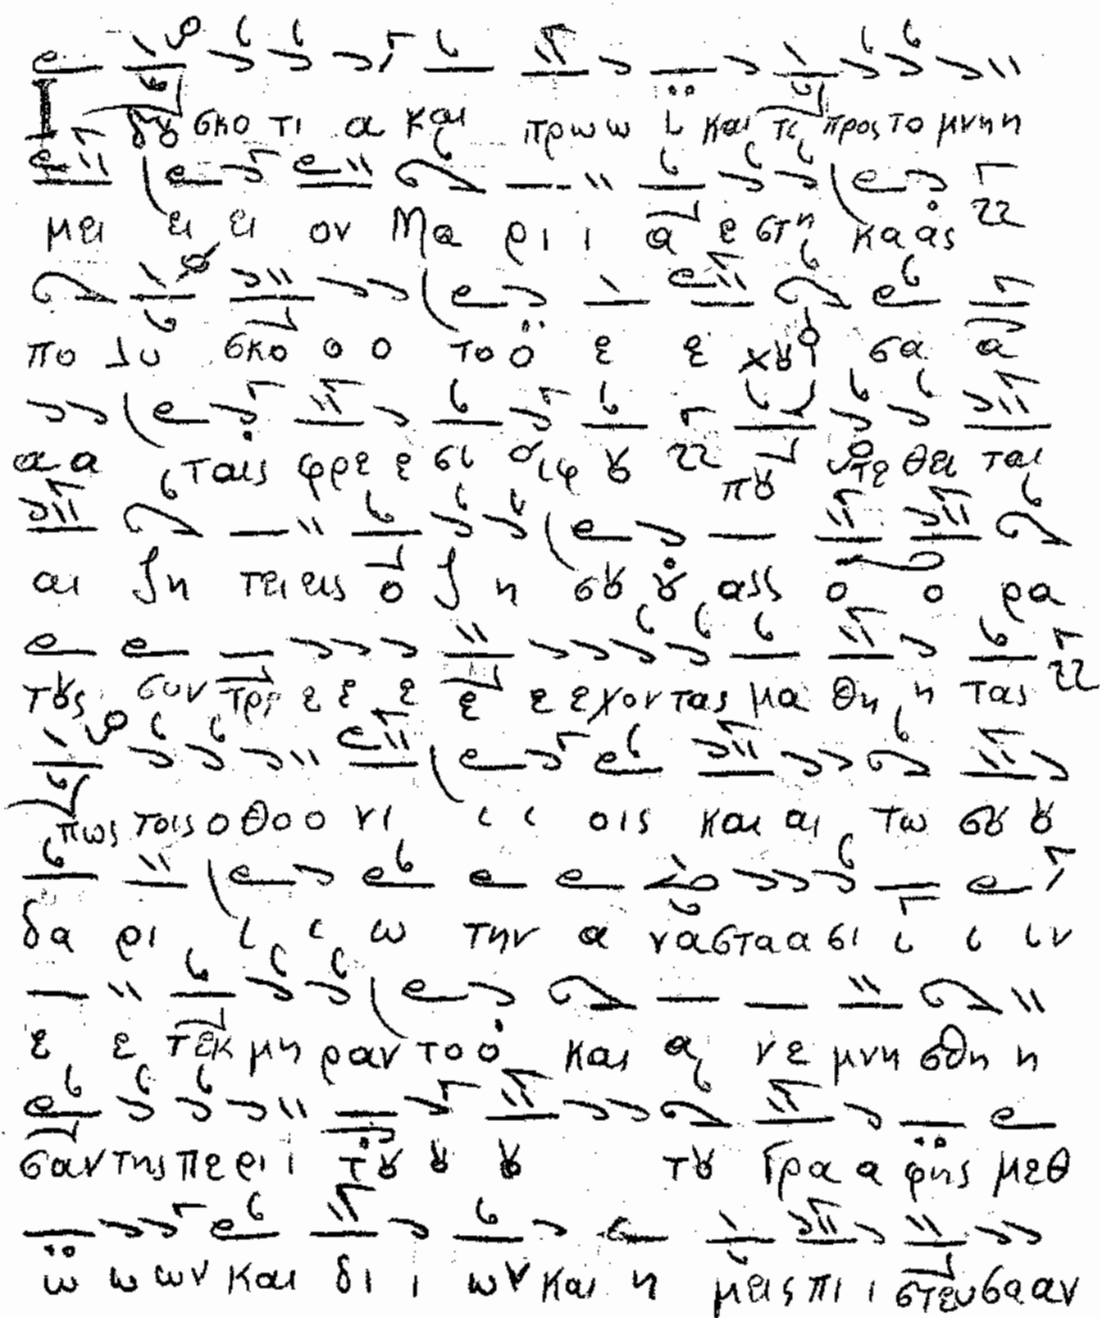 Ιδȣ σκο τι α και πρω ω ι και τι προς το μνη η
μει ει ει ον Μα ρι ι α ε στη κα ας
πο λυ σκο ο ο το ο ε ε χȣ σα α
α α ταις φρε ε σι σιφ ȣ πȣ τε θει ται
αι ζη τει εις ο ζη σȣ ȣ αλλ ο ο ρα
τȣς συν τρε ε ε ε ε ε χον τας μα θη η τας
πως τοις ο θο ο νι ι ι οις και αι τω σȣ ȣ
δα ρι ι ι ω την α να στα α σι ι ι ιν
ε ε τεκ μη ραν το ο και α νε μνη σθη η
σαν της πε ρι ι τȣ ȣ ȣ τȣ Γρα α φης μεθ
ω ω ων και δι ι ων και η μεις πι ι στευ σα αν